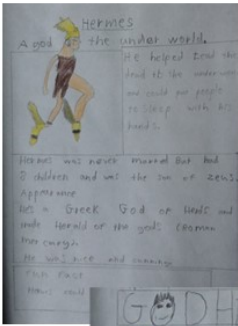 Hermes
A god of the under world.
He helped lead the
dead to the under world
and could put people
to sleep with his
hands.
Hermes was never married But had
8 children and was the son of zeus.
Appearance
he's a Greek God of Herds and
Herald of the gods (Roman
Mercury)
He was nice and cunning
Fun Fact
could
GOD H